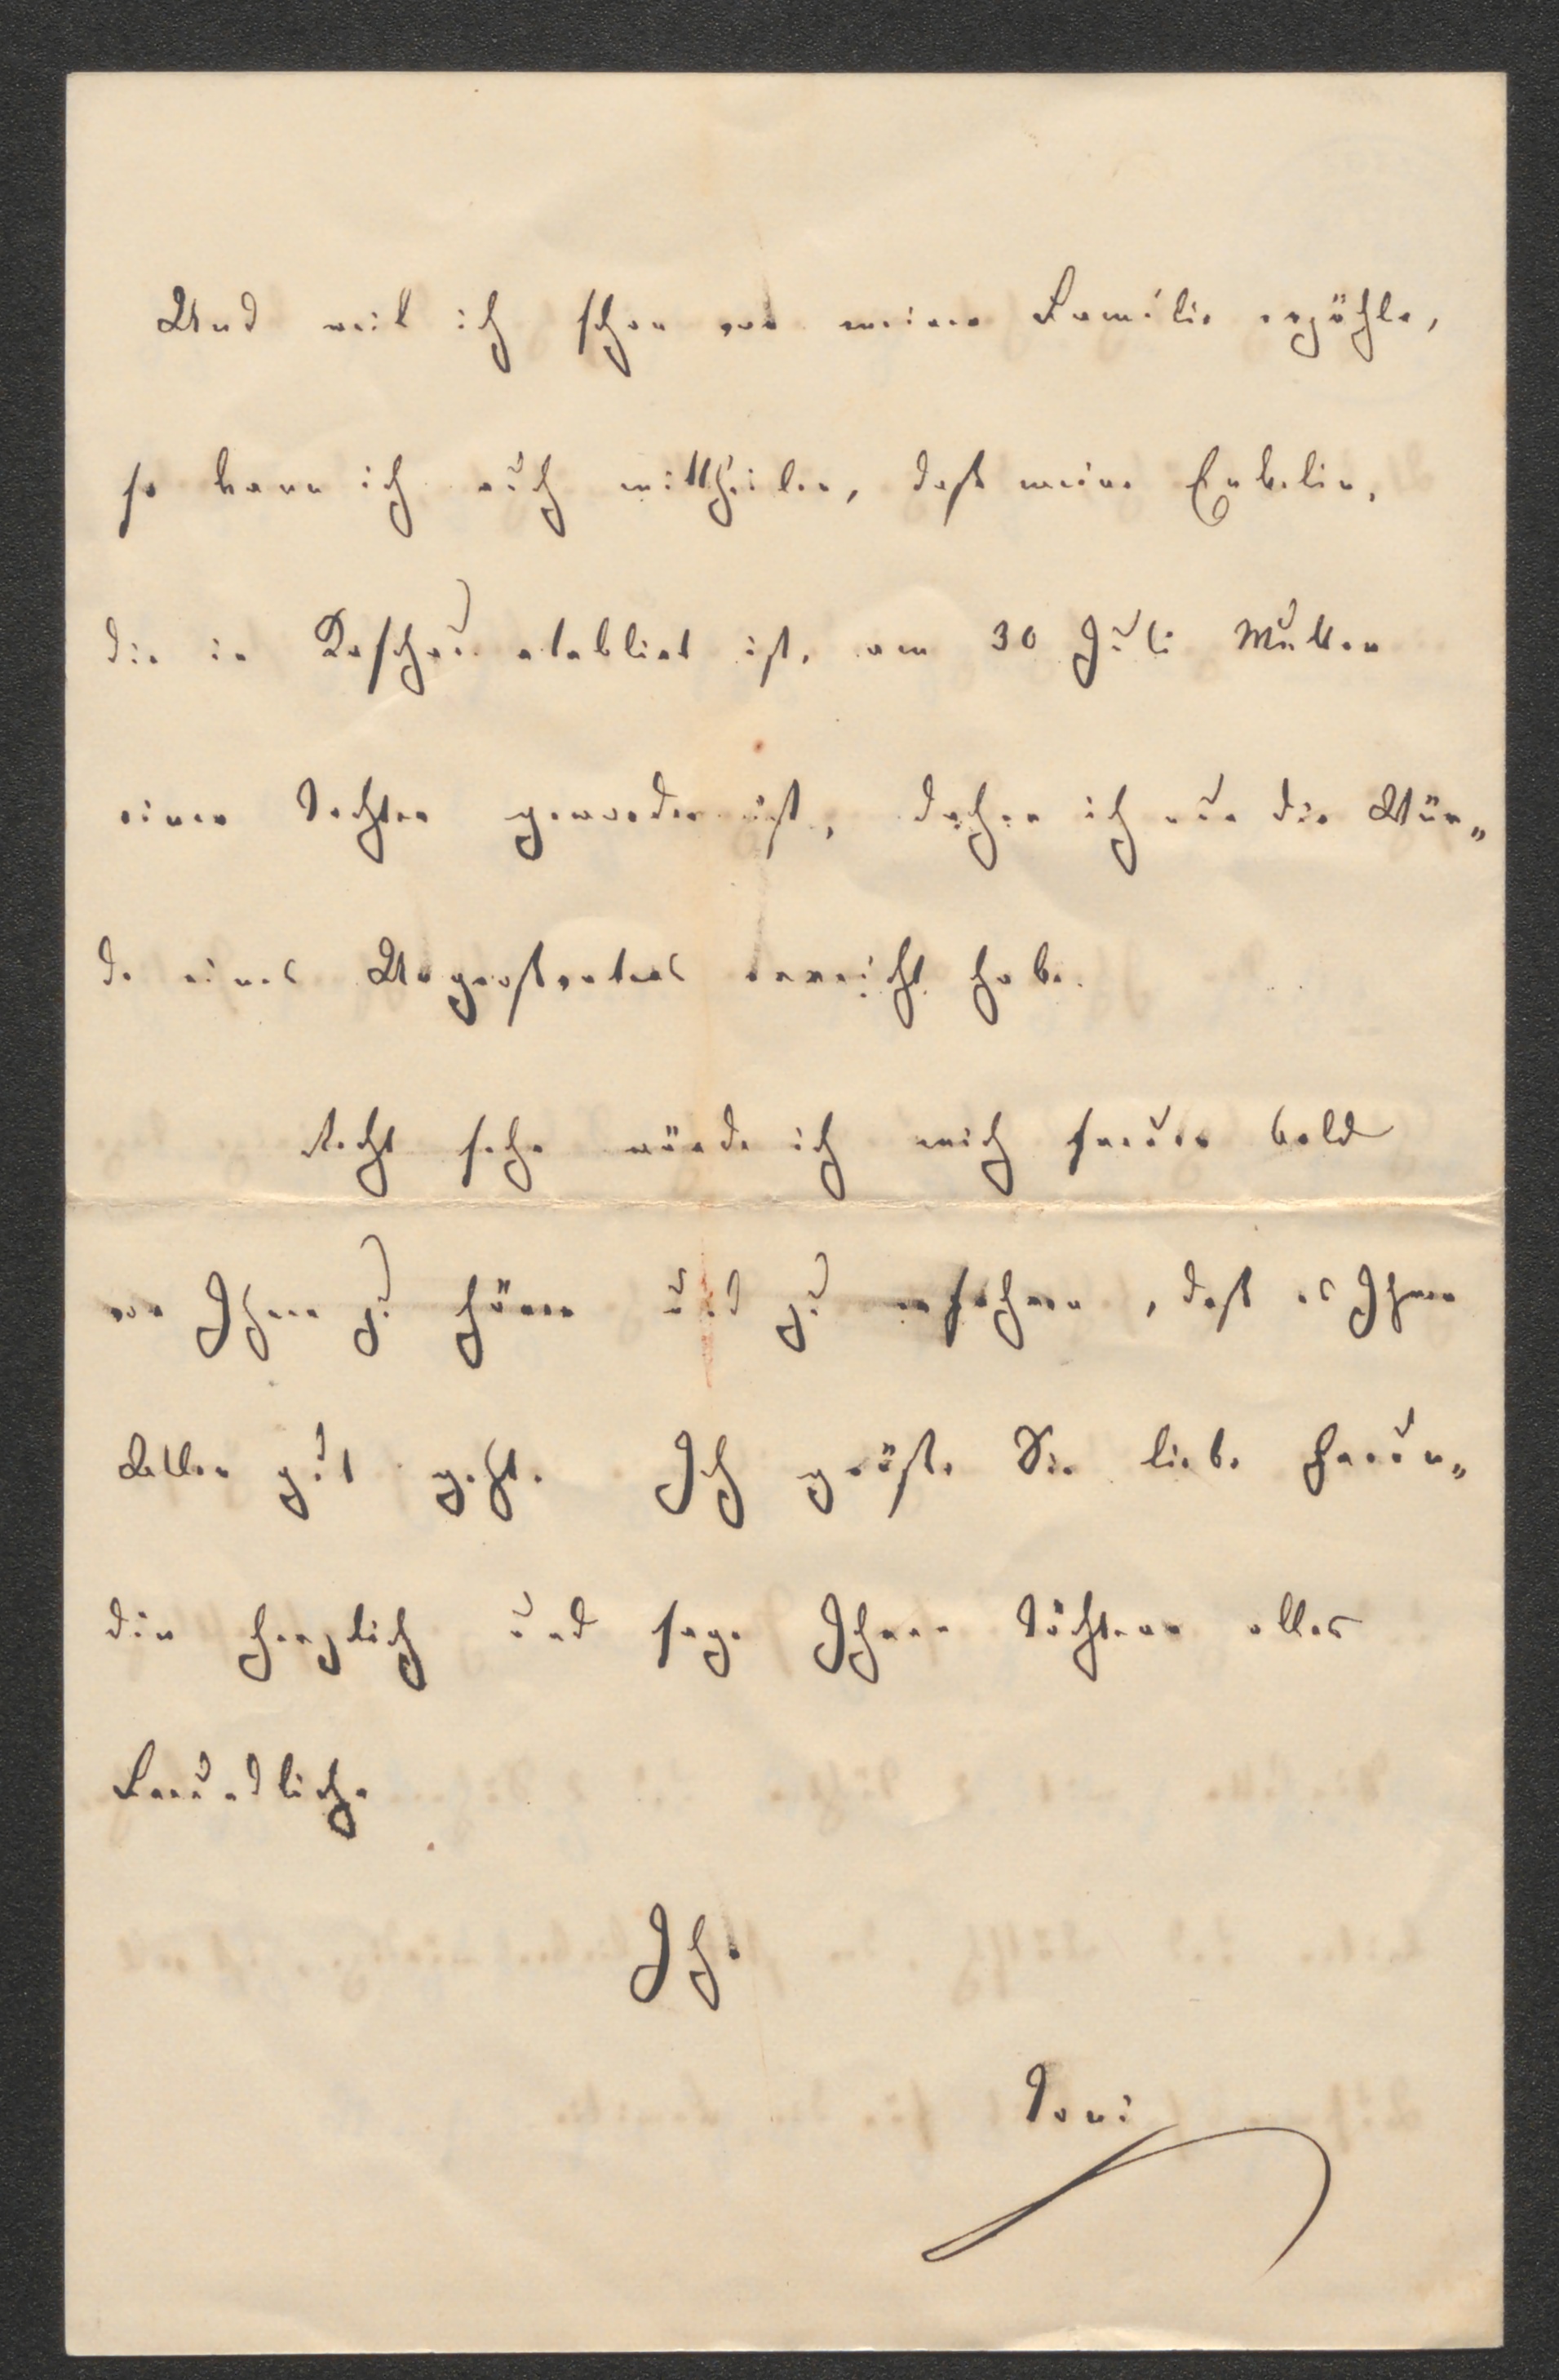 Und weil ich schon von meiner Familie erzähle,
so kann ich auch mittheilen, daß meine Enkelin,
die in Kaschau etablirt ist, am 30 Juli Mutter
einer Tochter geworden ist, daher ich nun die Wür„
de eines Urgrosvaters erreicht habe.
Recht sehr würde ich mich freuen bald
von Ihnen zu hören und zu erfahren, daß es Ihnen
Allen gut geht. Ich grüße Sie liebe Freun„
din herzlich und sage Ihren Töchtern alles
Freundliche
Ihr